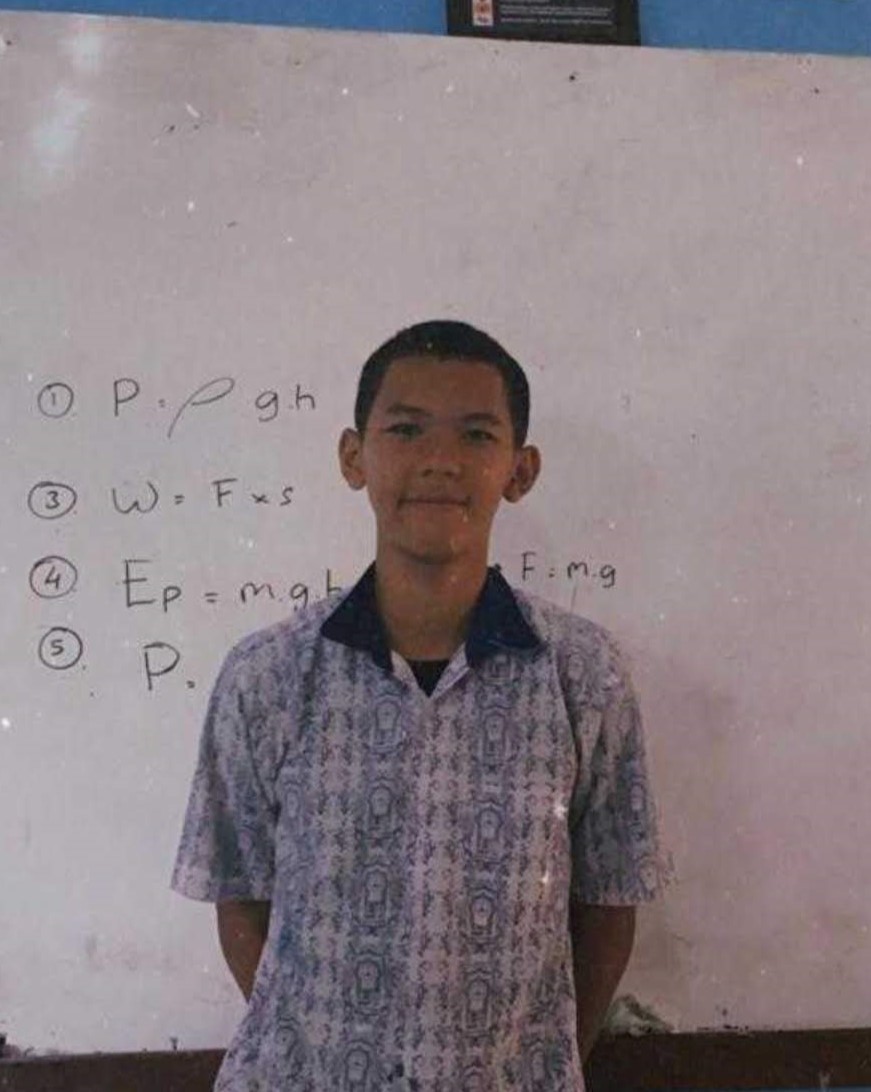 ① P = ρ g.h
③ W = F x s
④ Ep = m.g.h F = m.g
⑤. P =